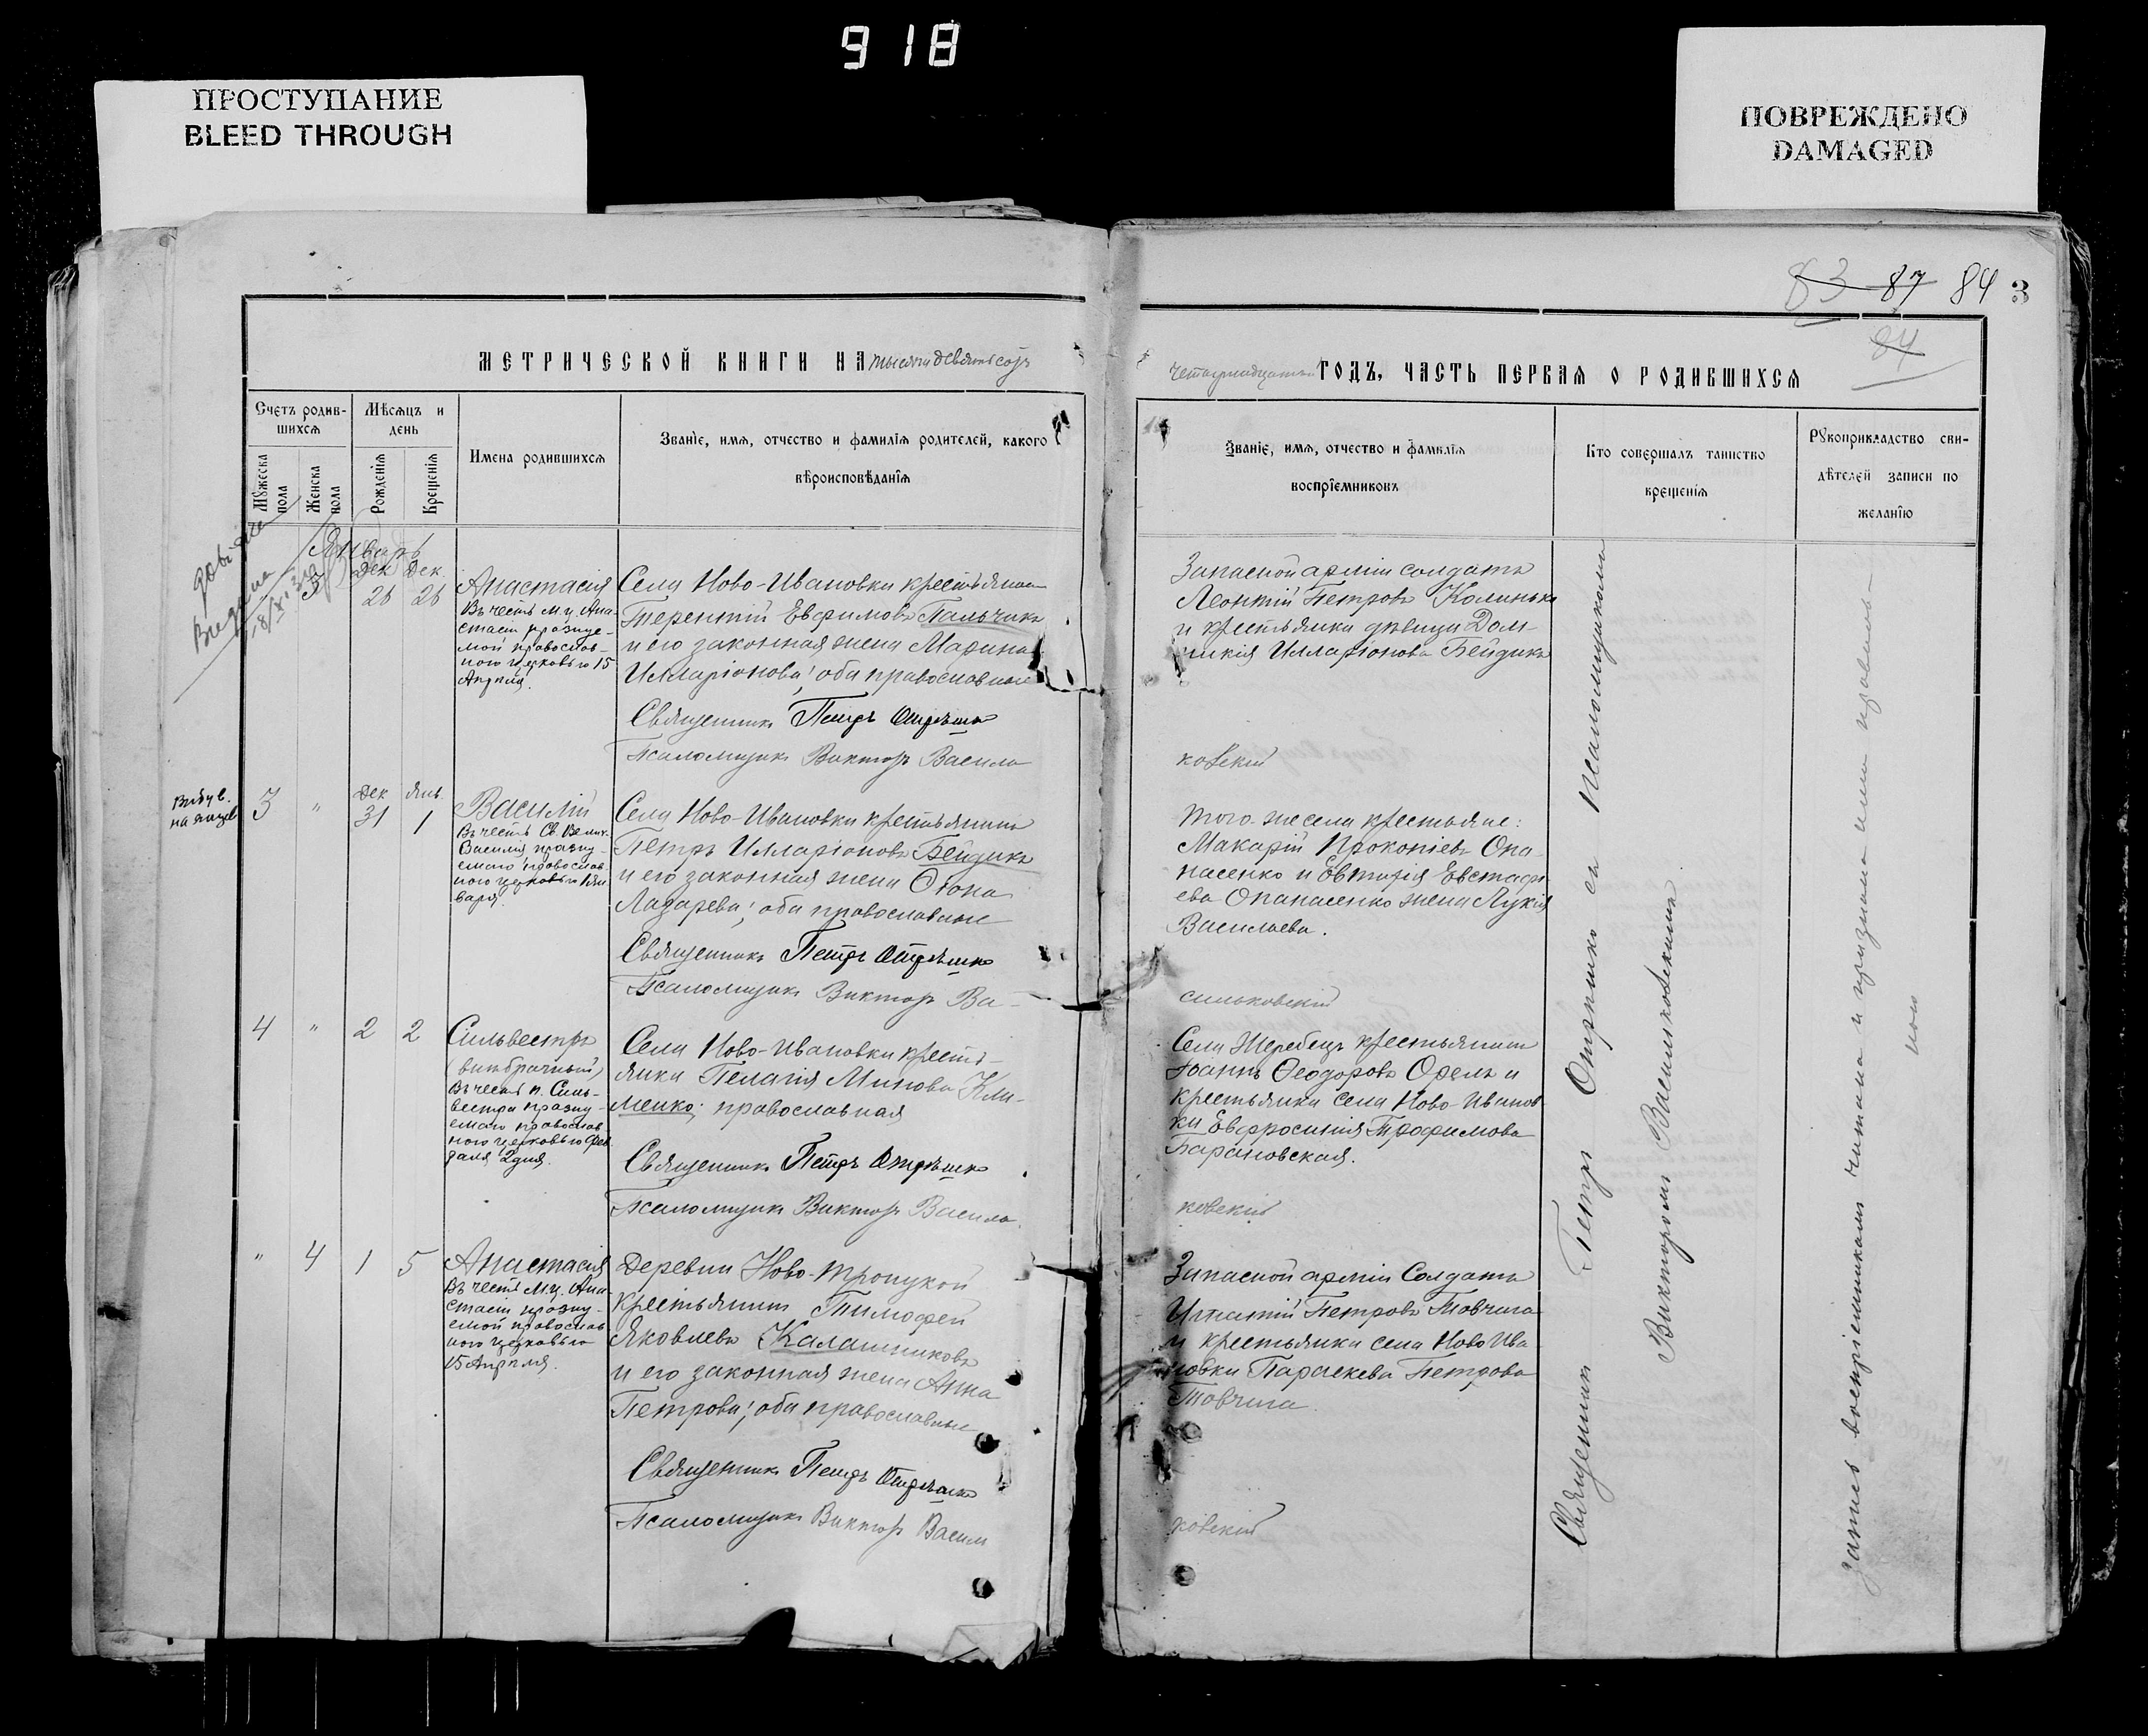 918
ПРОСТУПАНИЕ
BLEED THROUGH
ПОВРЕЖДЕНО
DAMAGED
83 87 84 3
84
МЕТРИЧЕСКОЙ КНИГИ НА тысяча девятьсотъ
четырнадцатый ГОДЪ, ЧАСТЬ ПЕРВАЯ О РОДИВШИХСЯ
Счетъ родив-
шихся
Мужеска пола
Женска пола
Мѣсяцъ и
день
Рожденія
Крещенія
Имена родившихся
Званіе, имя, отчество и фамилія родителей, какого
вѣроисповѣданія
Званіе, имя, отчество и фамилія
воспріемниковъ
Кто совершалъ таинство
крещенія
Рукоприкладство сви-
дѣтелей записи по
желанію
Январь
3 Дек 26 Дек. 26
Анастасія
Въ честь м.ц. Ана-
стасіи празнуе-
мой православ-
ного церковью 15
Апрѣля.
Села Ново-Ивановки крестьянинъ
Терентій Евфимовъ Пальчикъ
и его законная жена Марина
Илларіонова; оба православные
Священникъ Петръ Отрѣшко
Псаломщикъ Викторъ Василь
ковскій
Запасной арміи солдатъ
Леонтій Петровъ Калинька
и крестьянка дѣвица Дом-
никія Илларіонова Бейдикъ
3 " Дек 31 Янв. 1
Василій
Въ честь Св. Велик.
Василія празну-
емаго православ-
ного церковью 1 Ян-
варя.
Села Ново-Ивановки крестьянинъ
Петръ Илларіоновъ Бейдикъ
и его законная жена
Лазарева; оба православные
Священникъ Петръ Отрѣшко
Псаломщикъ Викторъ Ва-
сильковскій
Того-же села крестьяне:
Макарій Прокопіевъ Опа-
насенко и Евстафі-
ева Опанасенко жена Лукія
Васильева.
4 " 2 2
Сильвестръ
(внѣбрачный)
Въ честь п. Силь-
вестра празну-
емаго православ
ного церковью
2 дня.
Села Ново-Ивановки кресть-
янка Пелагія Минова Кли-
менко; православная
Священникъ Петръ Отрѣшко
Псаломщикъ Викторъ Василь
ковскій
Села Жеребецъ крестьянинъ
Іоаннъ Ѳеодоровъ Орелъ и
крестьянка села Ново-Иванов-
ки Евфросинія Трофимова
Барановская.
" 4 1 5
Анастасія
Въ честь М.ц. Ана
стасіи празну-
емой православ
ного церковью
15 Апрѣля.
Деревни Ново-Троицкой
крестьянинъ Тимофей
Яковлевъ Калашниковъ
и его законная жена Анна
Петрова; оба православные
Священникъ Петръ Отрѣшко
Псаломщикъ Викторъ Василь
ковскій
Запасной арміи Солдатъ
Игнатій Петровъ Товчига
и крестьянка села Ново Ива
новки Параскева Петрова
Товчига.
Священникъ Петръ Отрѣшко съ Псаломщикомъ
Викторомъ Васильковскимъ
Запись воспріемникамъ читана и признана ими правиль-
ною